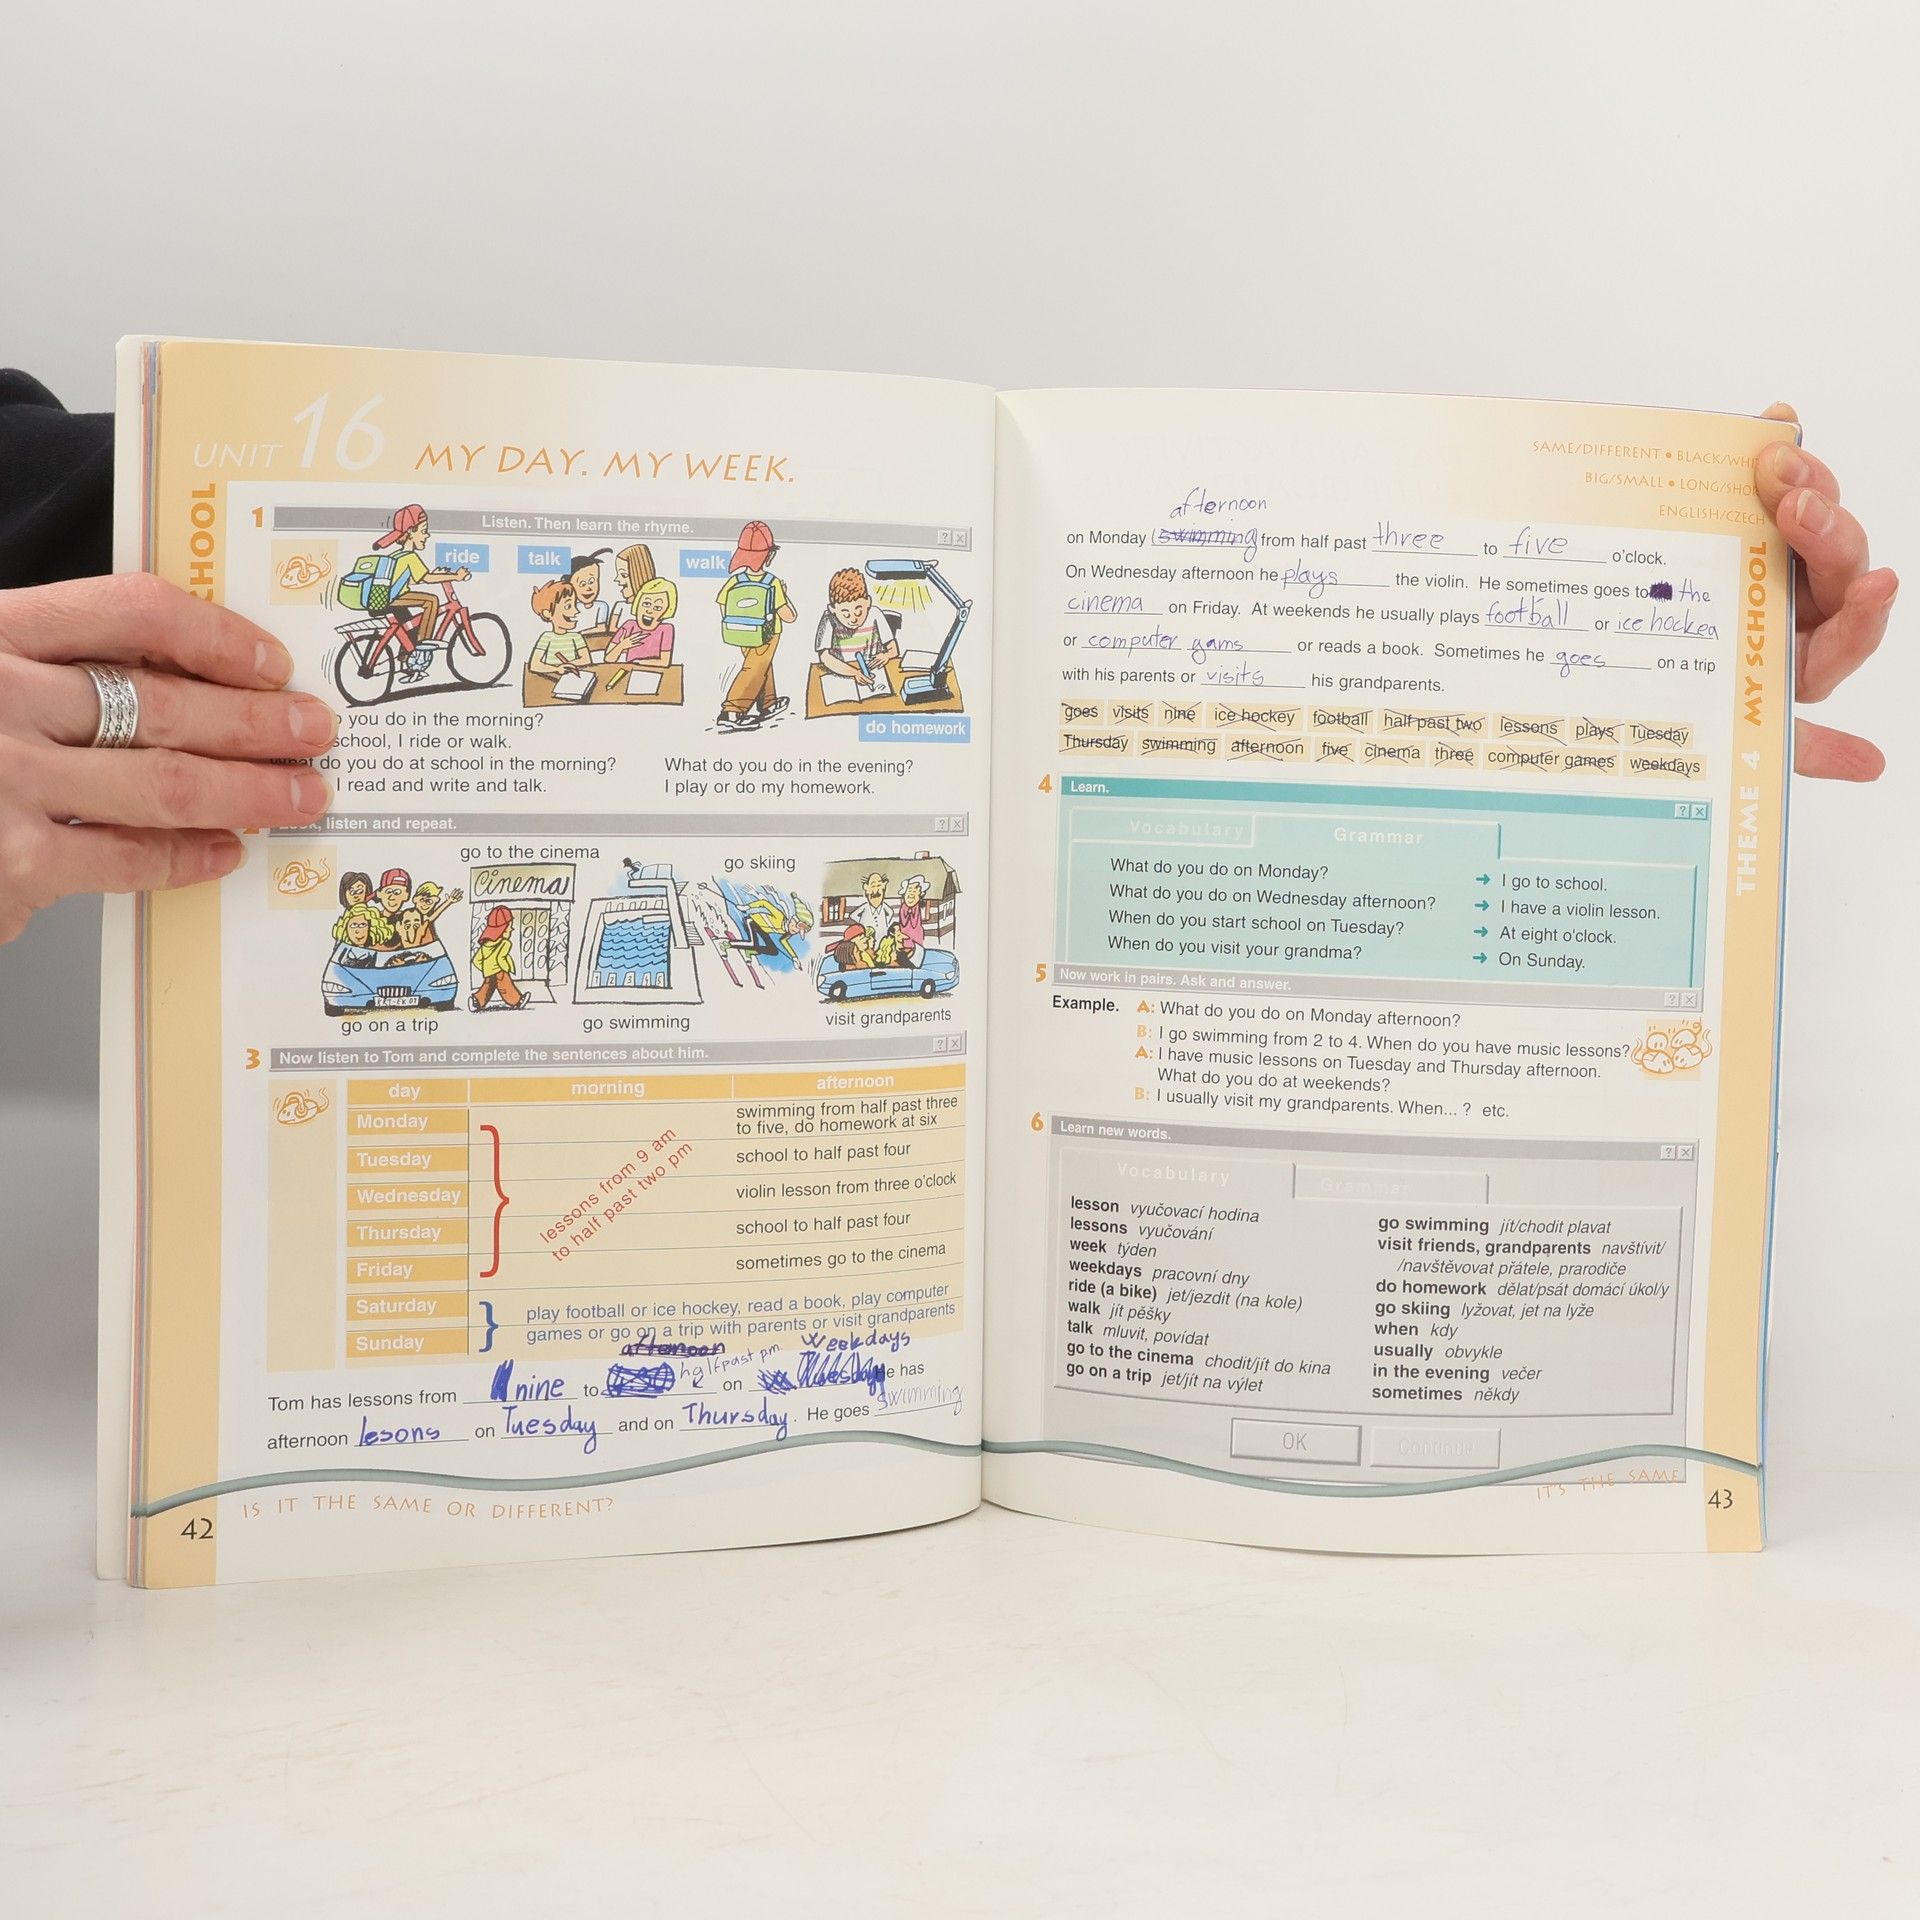 UNIT 16 MY DAY. MY WEEK.
1 Listen. Then learn the rhyme.
? x
ride
talk
walk
do homework
you do in the morning?
school, I ride or walk.
do you do at school in the morning?
I read and write and talk.
What do you do in the evening?
I play or do my homework.
listen and repeat.
? x
go to the cinema
go skiing
Cinema
go on a trip
go swimming
visit grandparents
3 Now listen to Tom and complete the sentences about him.
? x
day morning afternoon
Monday
swimming from half past three
to five, do homework at six
Tuesday
school to half past four
Wednesday
violin lesson from three o'clock
Thursday
school to half past four
Friday
sometimes go to the cinema
lessons from 9 am
to half past two pm
Saturday
play football or ice hockey, read a book, play computer
Sunday
games or go on a trip with parents or visit grandparents
afternoon weekdays
half past pm
Tom has lessons from nine to on Tuesday He has
afternoon lesons on Tuesday and on Thursday. He goes swimming
IS IT THE SAME OR DIFFERENT?
42
SAME/DIFFERENT • BLACK/WHI
BIG/SMALL • LONG/SHOR
ENGLISH/CZECH
afternoon
on Monday swimming from half past three to five o'clock.
On Wednesday afternoon he plays the violin. He sometimes goes to the
cinema on Friday. At weekends he usually plays football or ice hockea
or computer gams or reads a book. Sometimes he goes on a trip
with his parents or visits his grandparents.
goes visits nine ice hockey football half past two lessons plays Tuesday
Thursday swimming afternoon five cinema three computer games weekdays
4 Learn.
? x
Vocabulary Grammar
What do you do on Monday? → I go to school.
What do you do on Wednesday afternoon? → I have a violin lesson.
When do you start school on Tuesday? → At eight o'clock.
When do you visit your grandma? → On Sunday.
5 Now work in pairs. Ask and answer.
? x
Example. A: What do you do on Monday afternoon?
B: I go swimming from 2 to 4. When do you have music lessons?
A: I have music lessons on Tuesday and Thursday afternoon.
What do you do at weekends?
B: I usually visit my grandparents. When... ? etc.
6 Learn new words.
? x
Vocabulary Grammar
lesson vyučovací hodina
lessons vyučování
week týden
weekdays pracovní dny
ride (a bike) jet/jezdit (na kole)
walk jít pěšky
talk mluvit, povídat
go to the cinema chodit/jít do kina
go on a trip jet/jít na výlet
go swimming jít/chodit plavat
visit friends, grandparents navštívit/
/navštěvovat přátele, prarodiče
do homework dělat/psát domácí úkol/y
go skiing lyžovat, jet na lyže
when kdy
usually obvykle
in the evening večer
sometimes někdy
OK Continue
IT'S THE SAME
43
THEME 4 MY SCHOOL